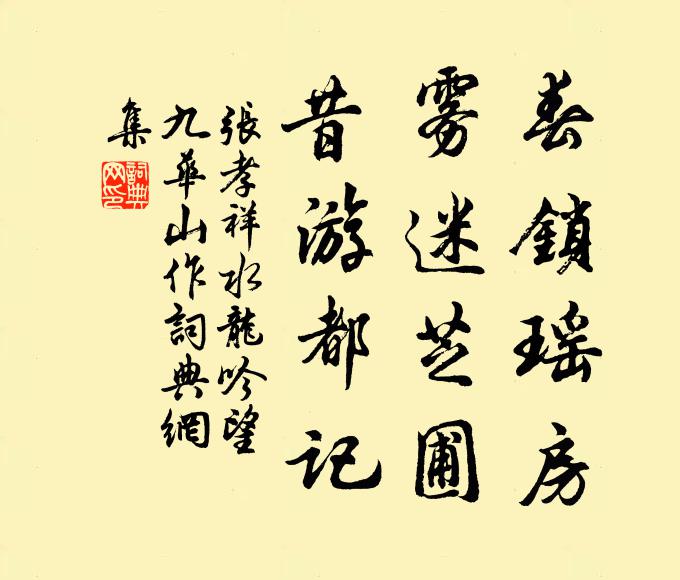 春鎖瑶房
雾迷芝圃
昔游都記
張孝祥水龍吟望
九華山作詞典網
集
詞典
网印